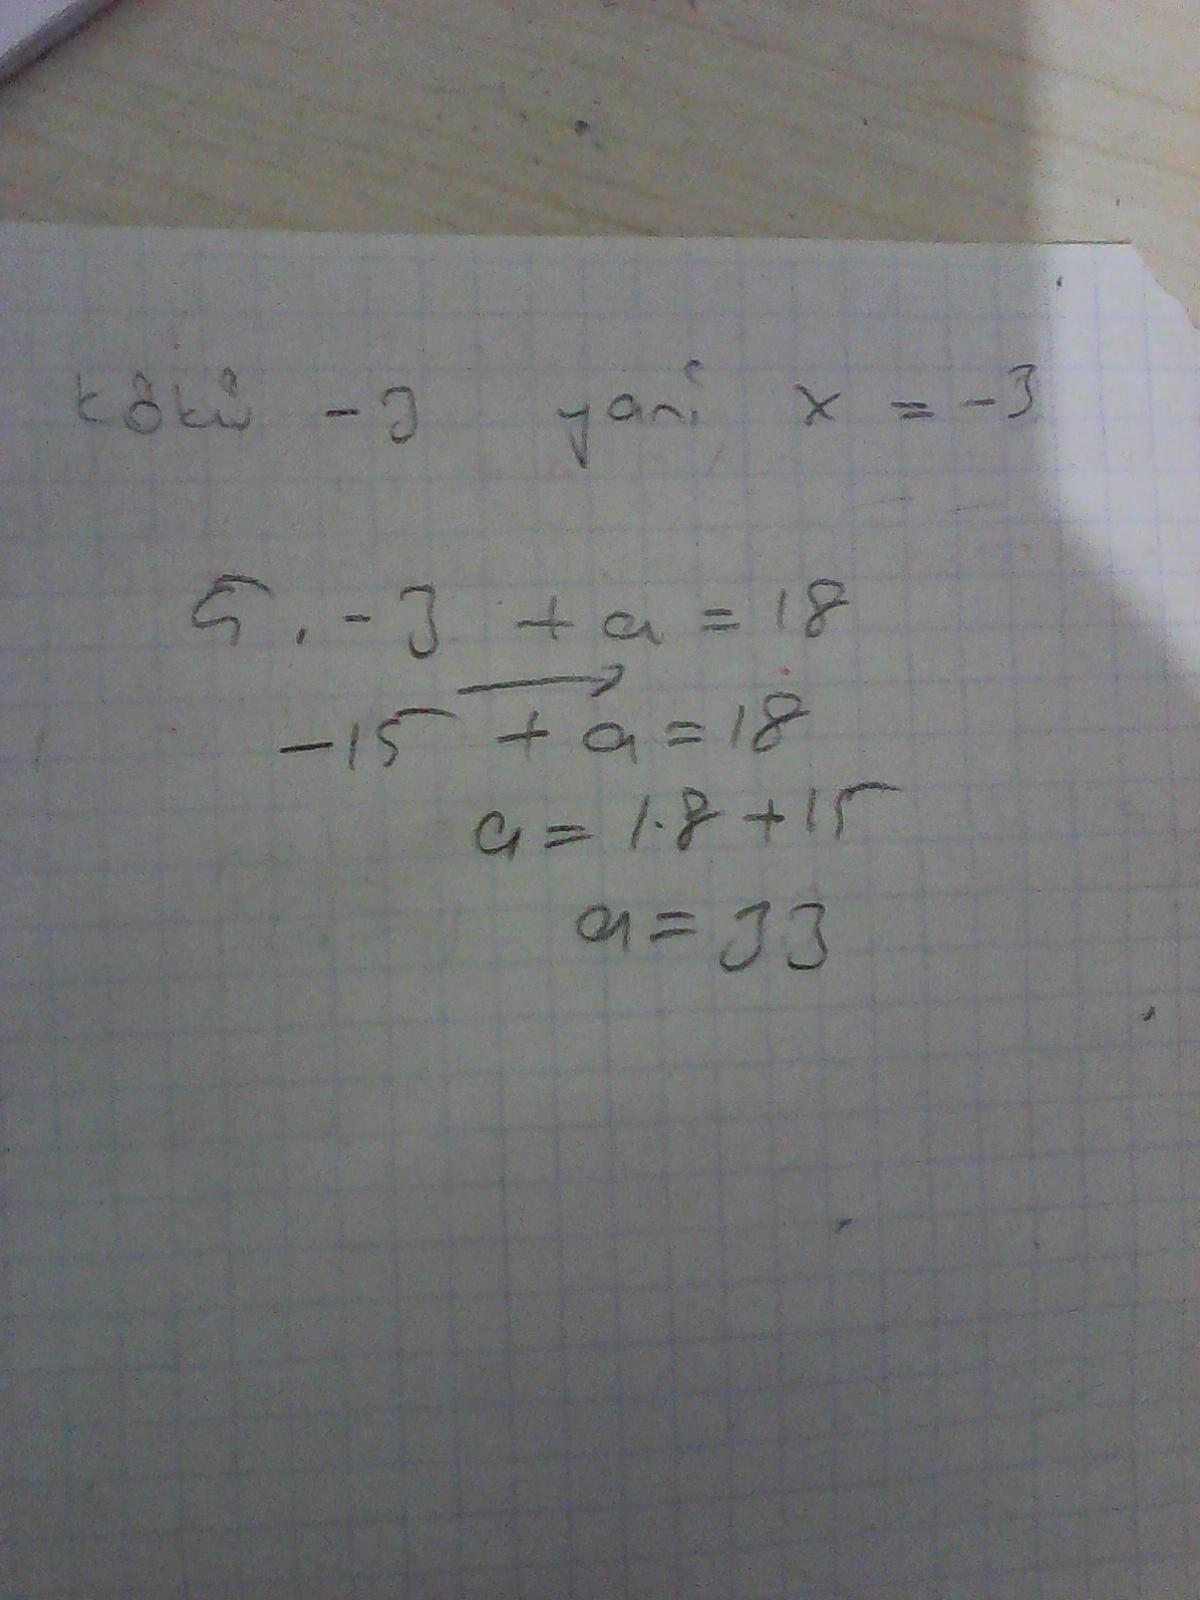 kökü -3 yani x = -3
5 . -3 + a = 18
-15 + a = 18
a = 18 + 15
a = 33